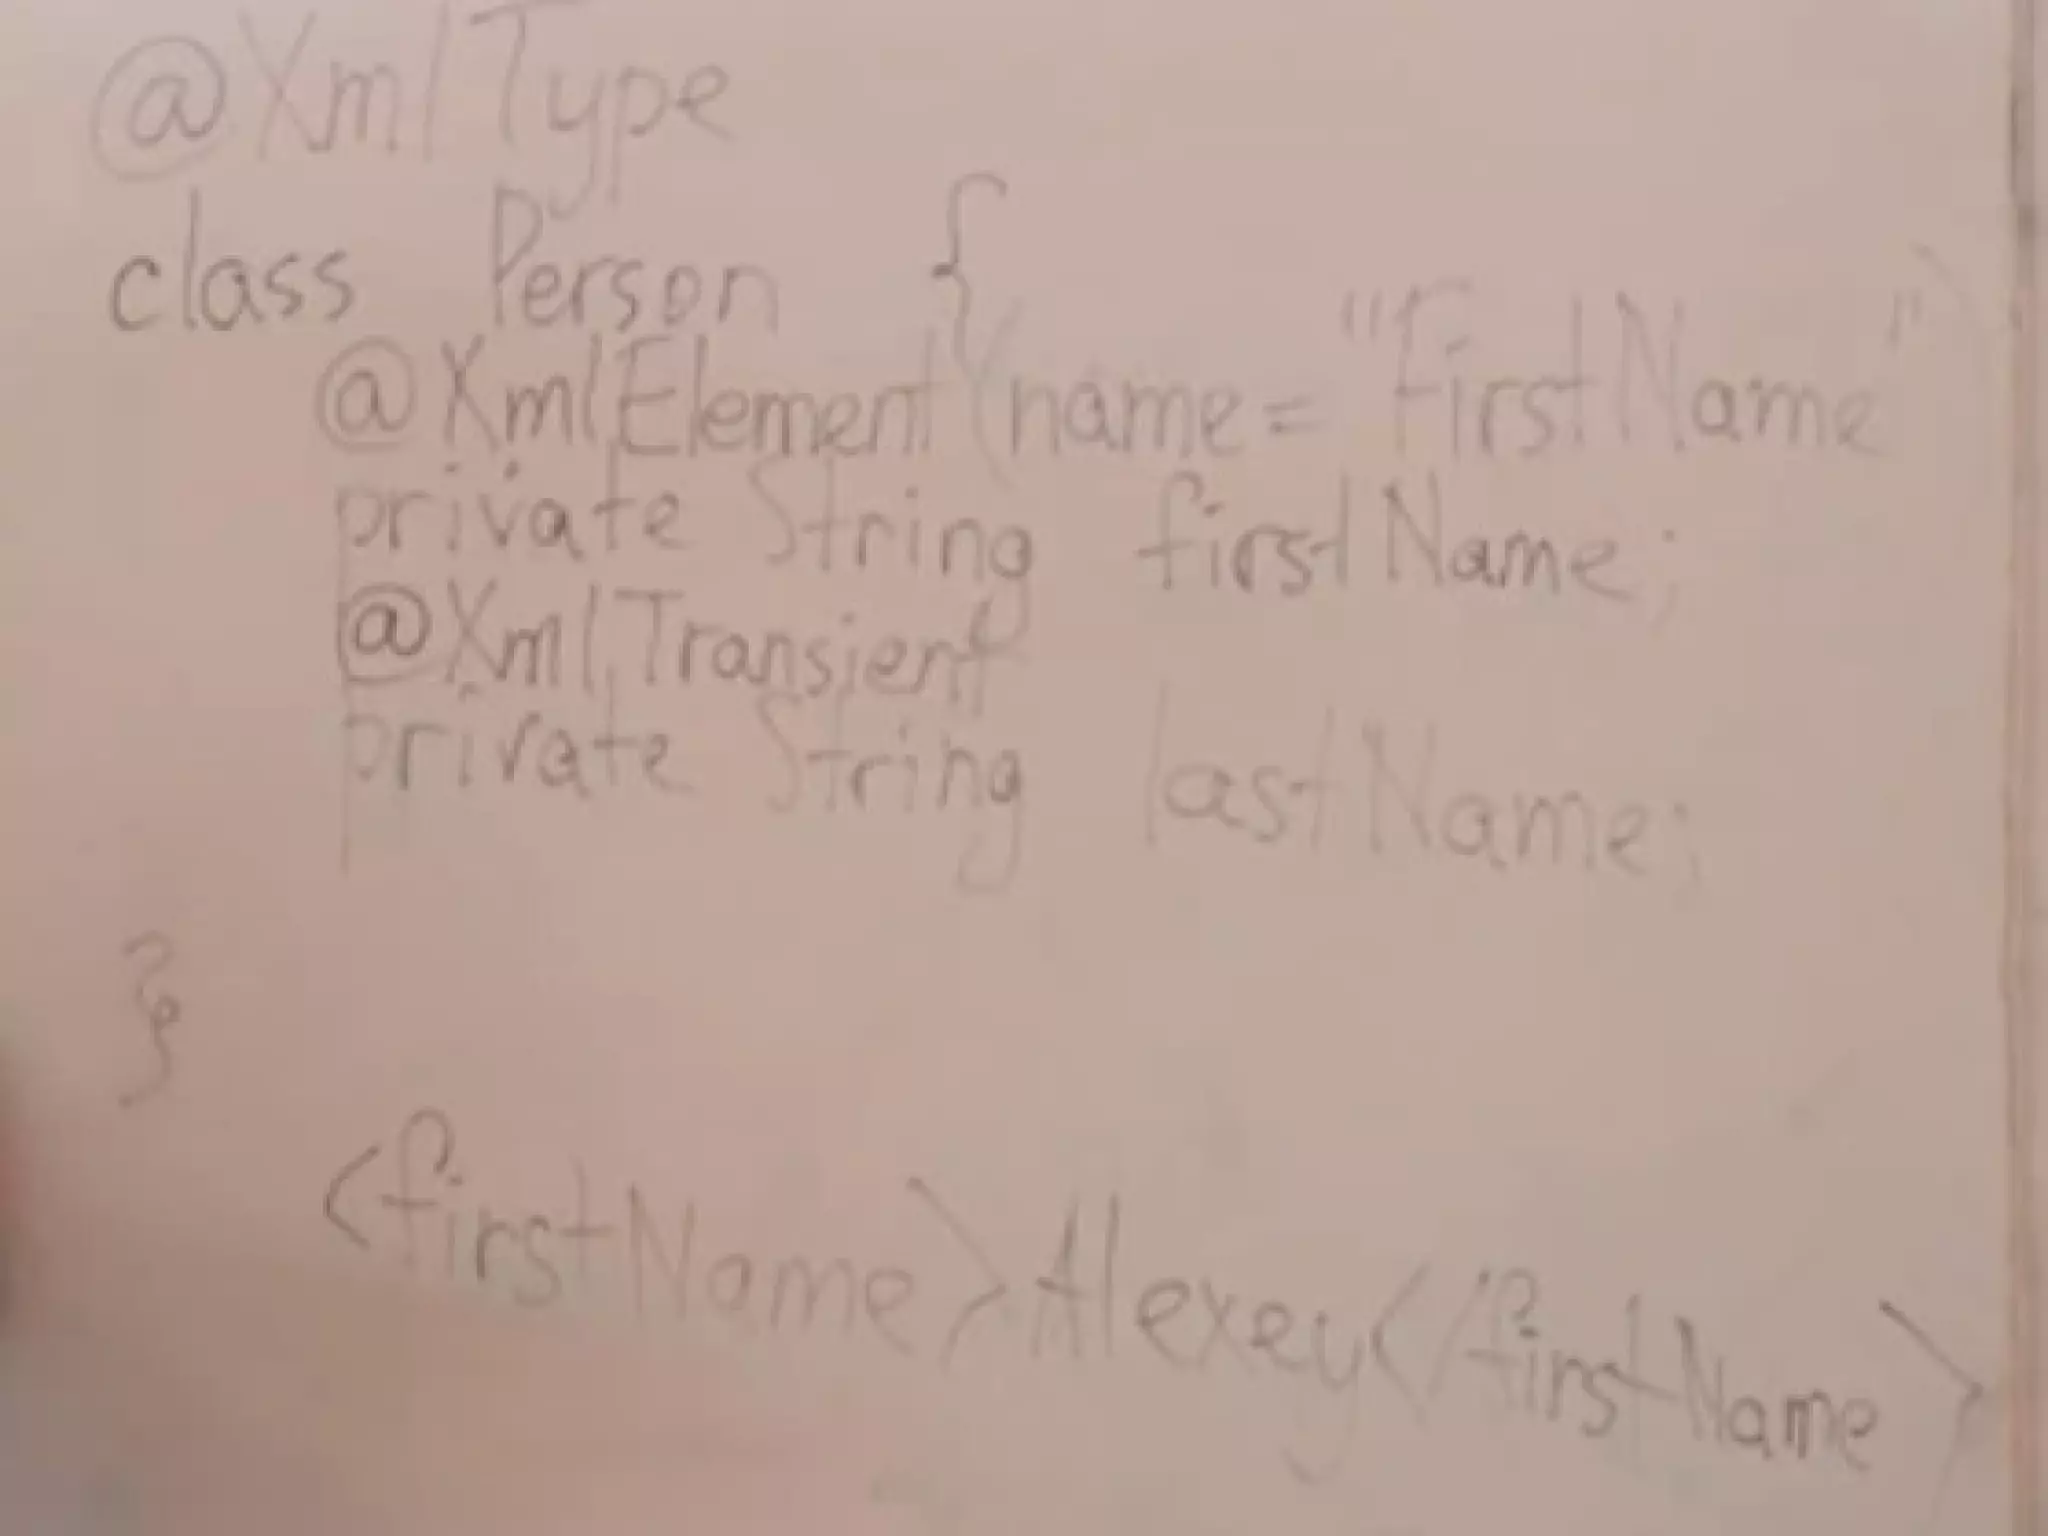 @XmlType
class Person {
@XmlElement(name="firstName")
private String firstName;
@XmlTransient
private String lastName;
}
<firstName>Alexey</firstName>